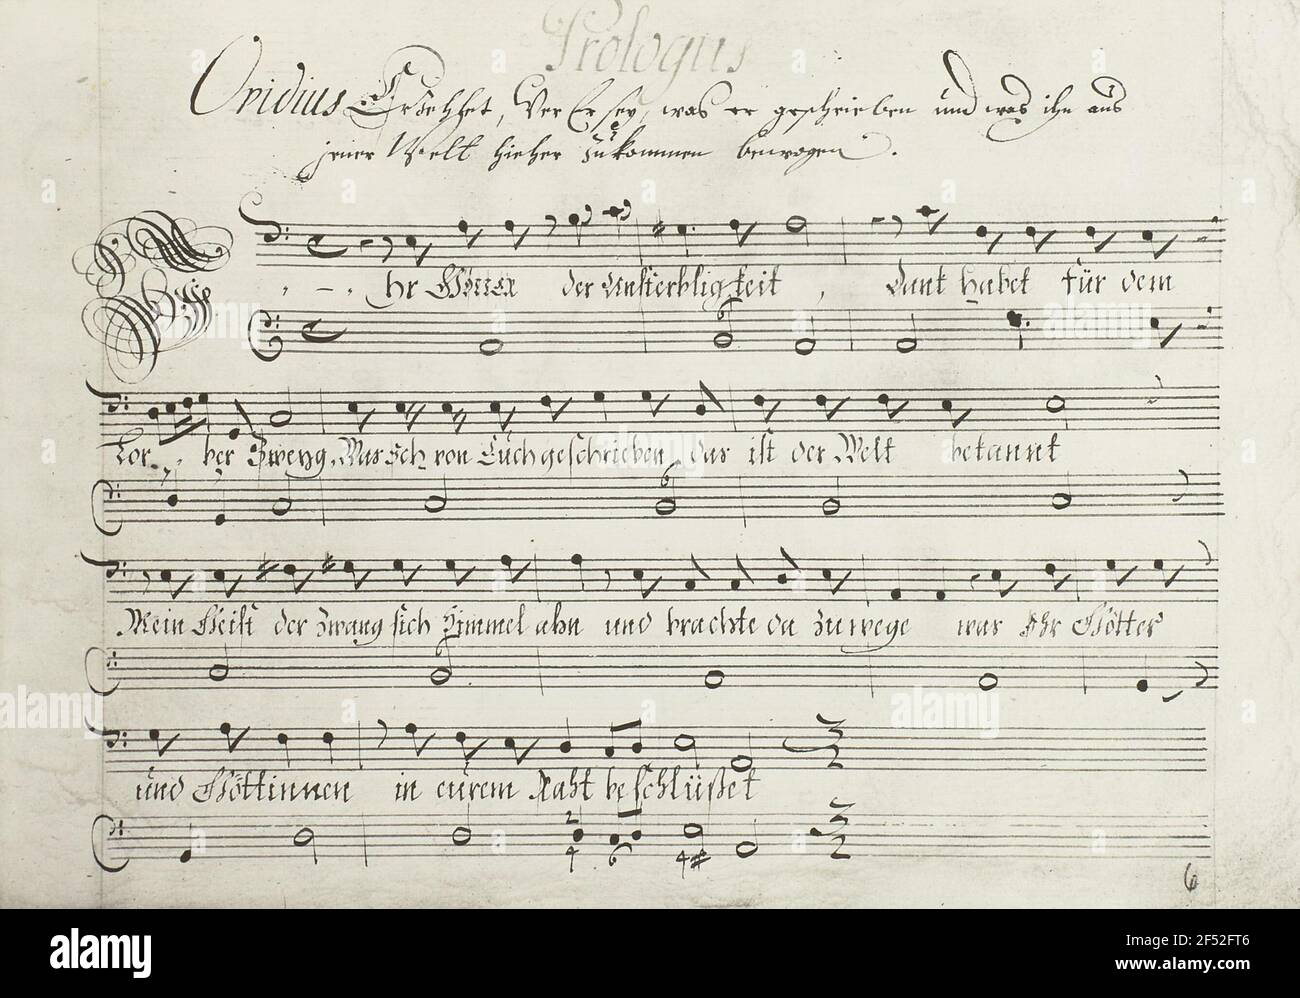 Prologus
Ovidius Erzehlet, Wer Er sey, was er geschrieben und was ihn aus
jener Welt hieher zu kommen bewogen.
Ihr Götter der Unsterbligkeit, dant habet für dem
6
Lor- ber Zweyg, Was Ich von Euch geschrieben das ist der Welt bekannt
7 7 6
Mein Geist der zwang sich Himmel ahn und brachte da zuwege was Ihr Götter
6
und Göttinnen in eurem Raht beschlüßet
2
4 6 4#
6
alamy
Image ID: 2F52FT6
www.alamy.com